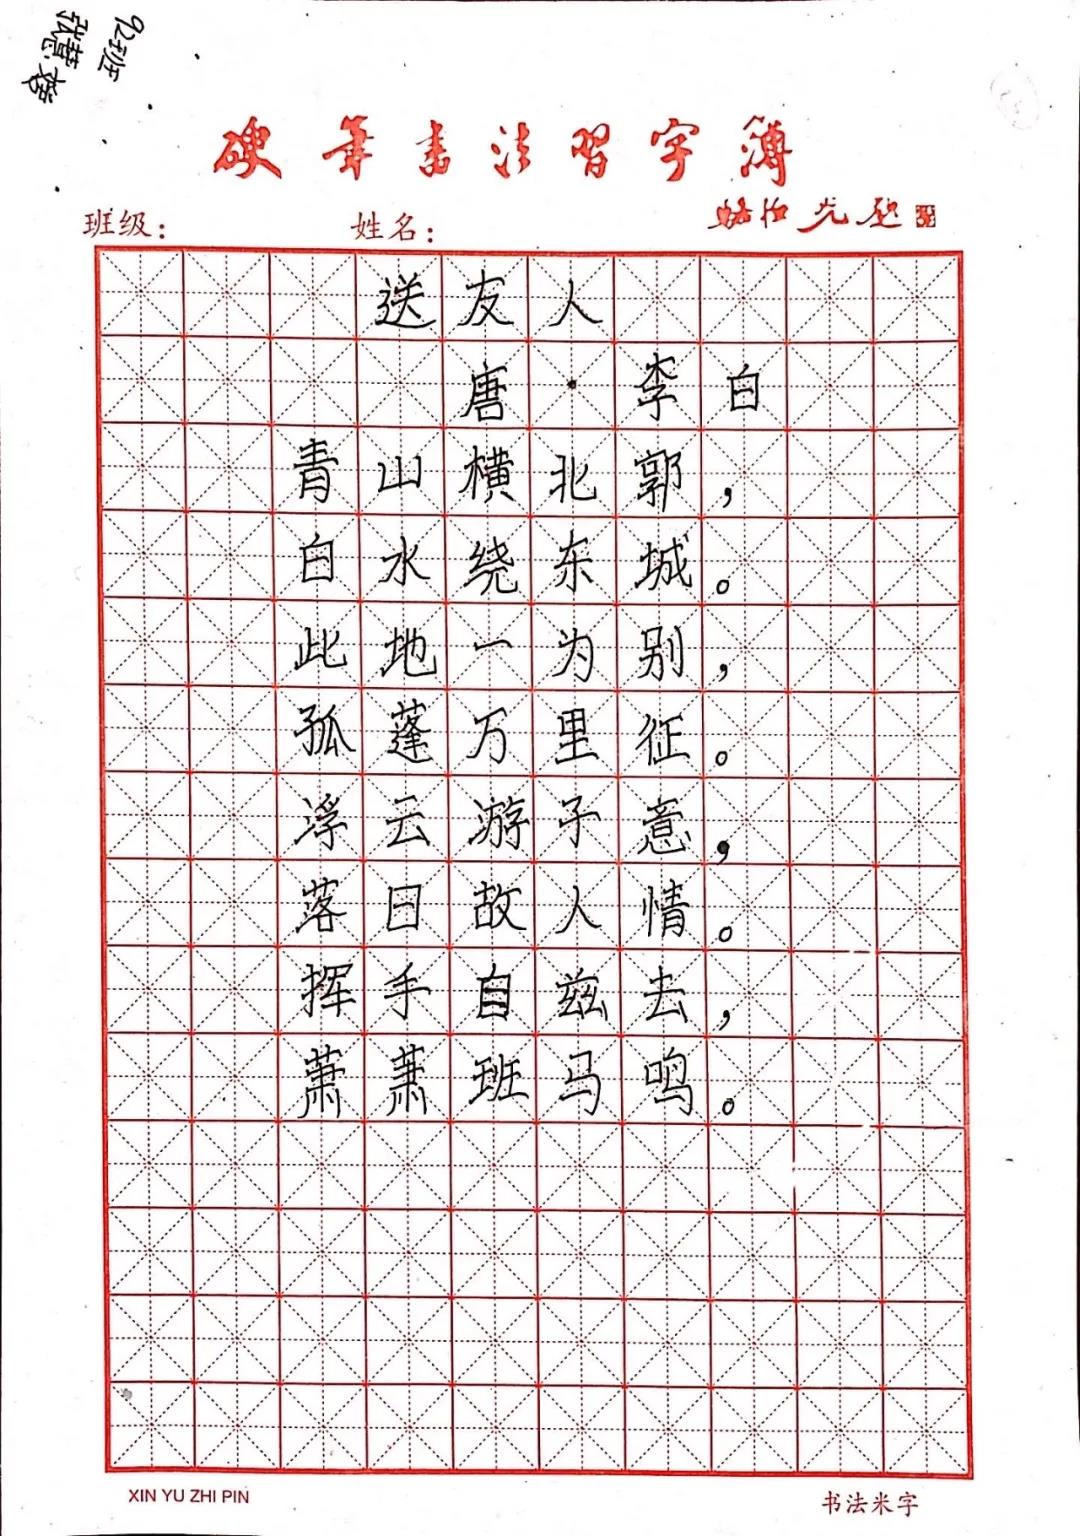 92班
硬笔书法習字簿
班级： 姓名：
送友人
唐·李白
青山横北郭，
白水绕东城。
此地一为别，
孤蓬万里征。
浮云游子意，
落日故人情。
挥手自兹去，
萧萧班马鸣。
XIN YU ZHI PIN
书法米字